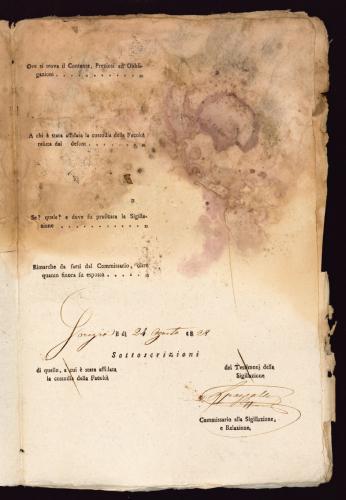 Ove si trova il Contante, Preziosi ed Obbli-
gazioni . . . . . . . . . . . . „
A chi è stata affidata la custodia della Facoltà
relitta dal defont . . . . . . . . „
„
Se? quale? e dove fu praticata la Sigilla-
zione . . . . . . . . . . . . „
Rimarche da farsi dal Commissario, oltre
quanto finora fu esposto . . . . . . „
li di 24 Agosto 1824
Sottoscrizioni
di quello, a cui è stata affidata
la custodia della Facoltà
dei Testimonj della
Sigillazione
Commissario alla Sigillazione,
e Relazione,